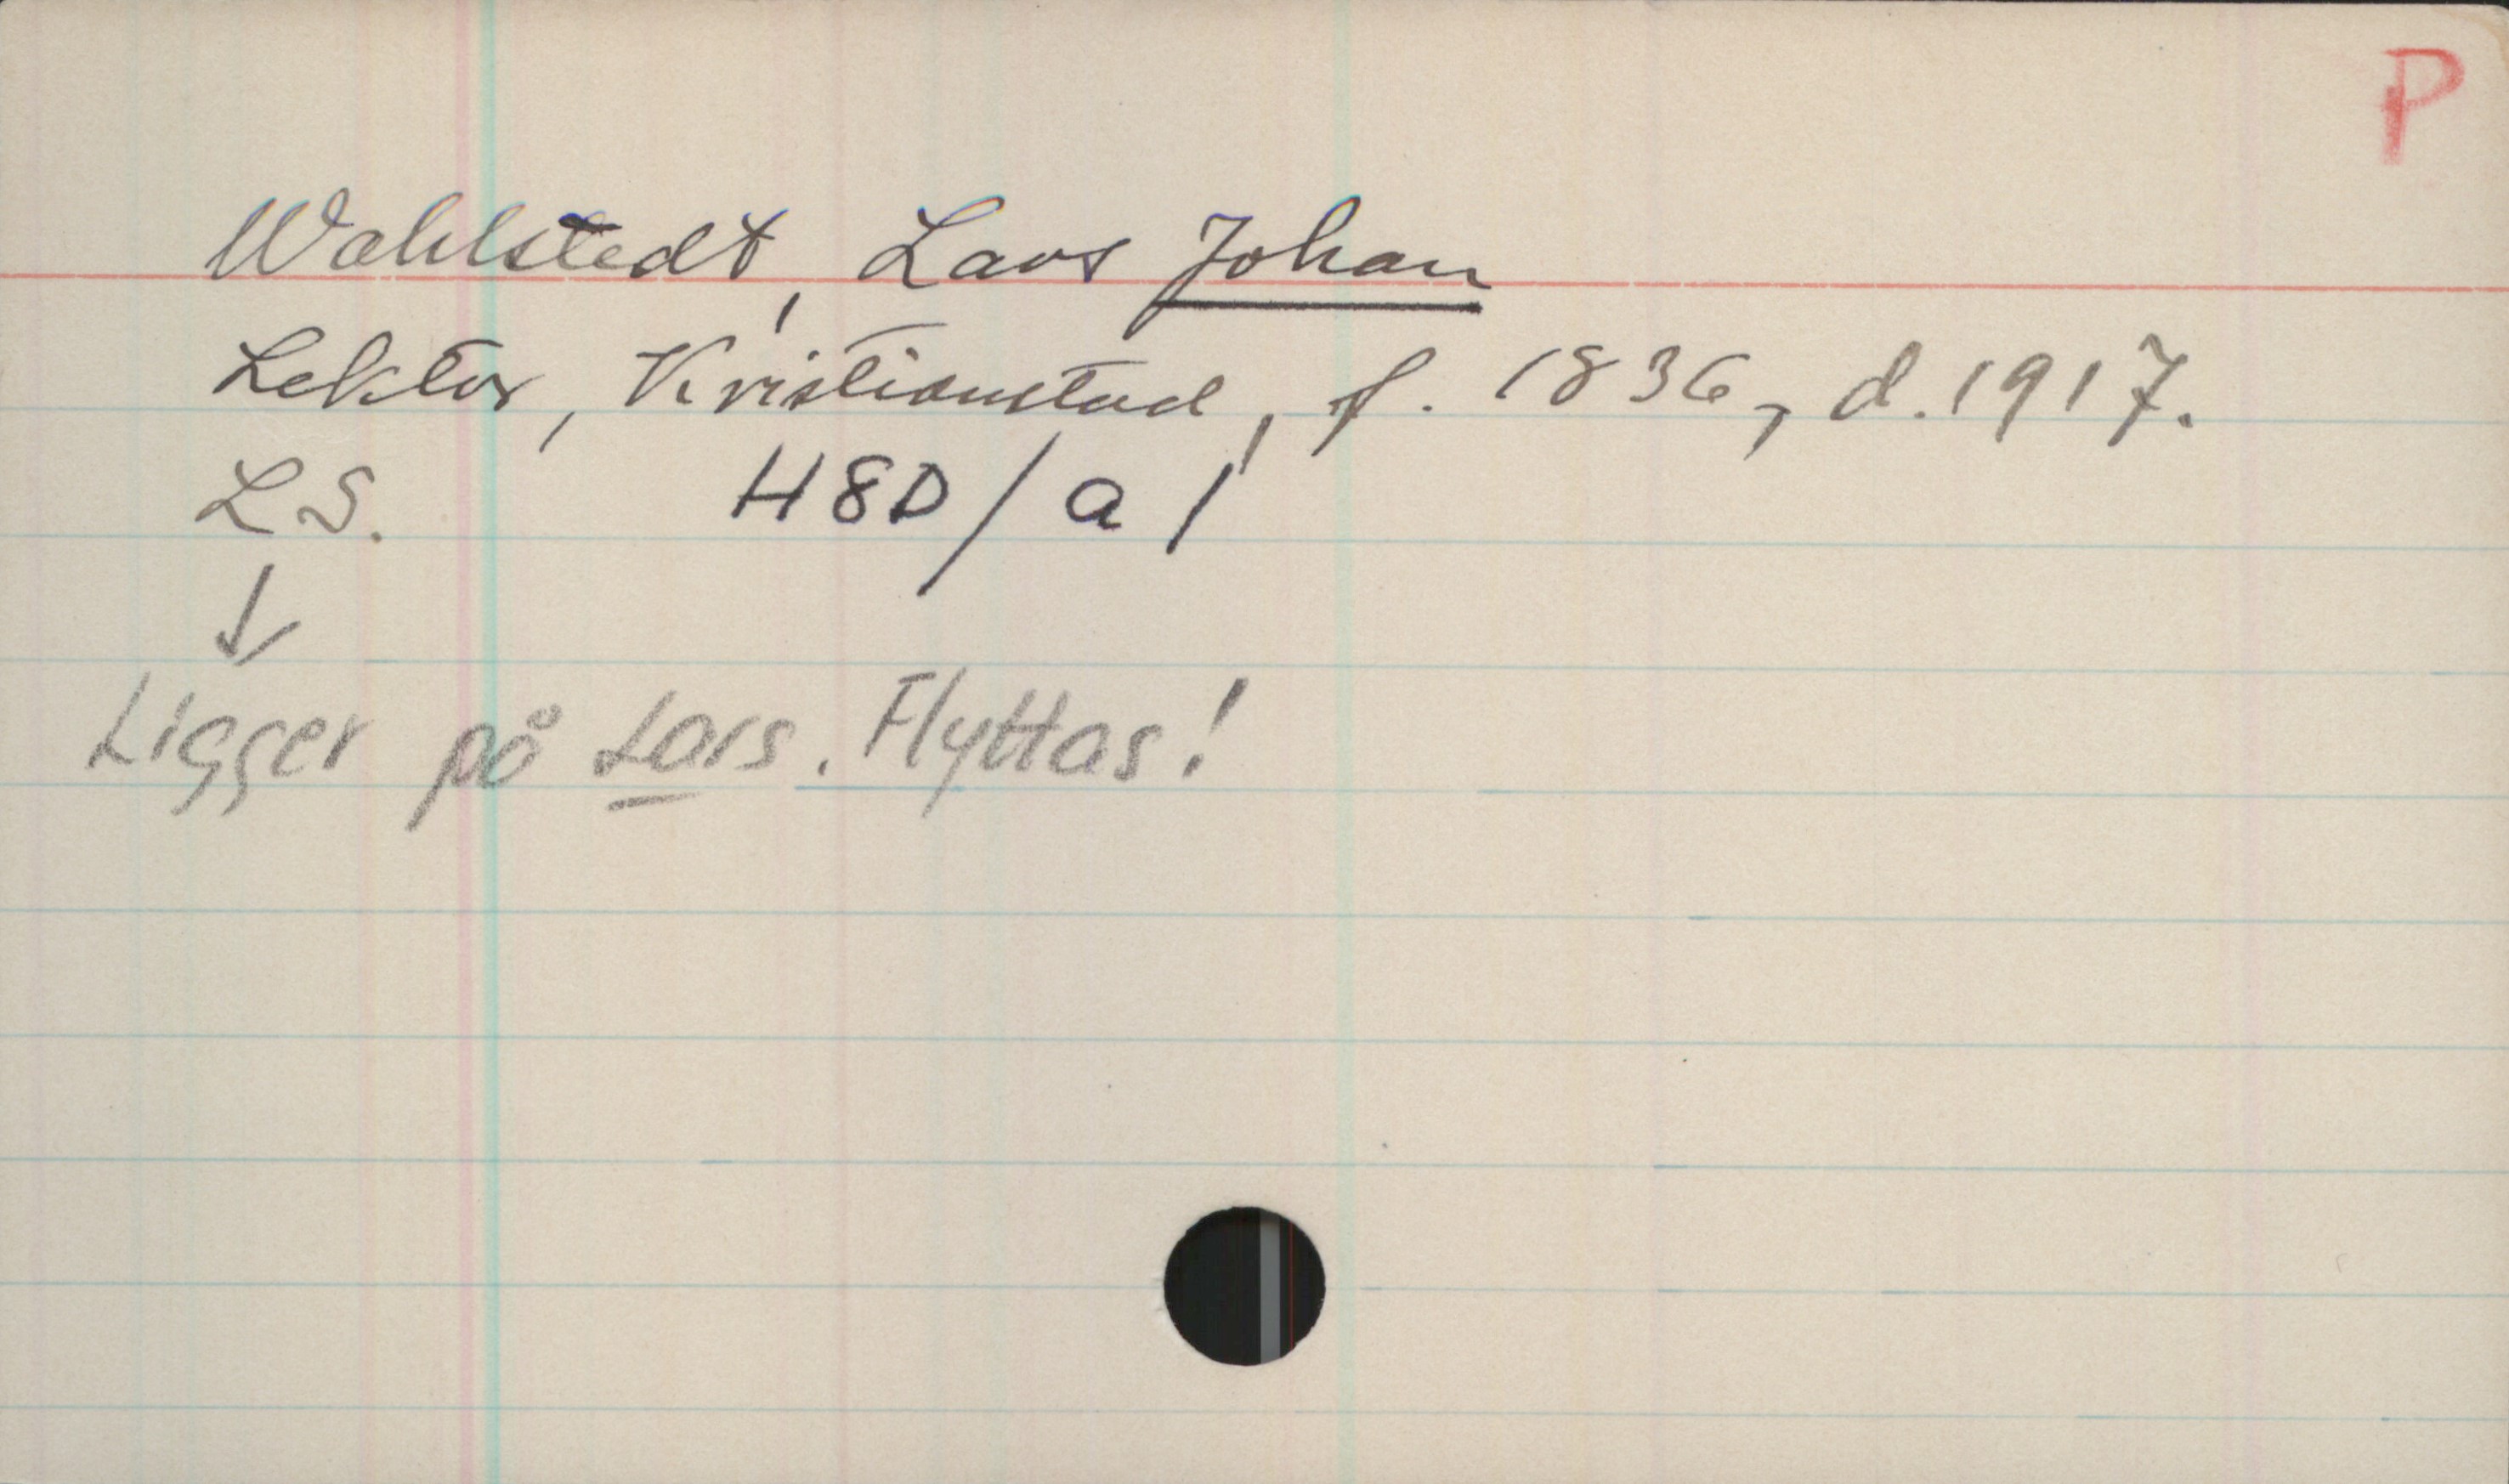 P
Wahlstedt, Lars Johan
Lektor, Kristianstad, f. 1836, d. 1917.
LS. H8D/a1
↓
Ligger på Lars. Flyttas!